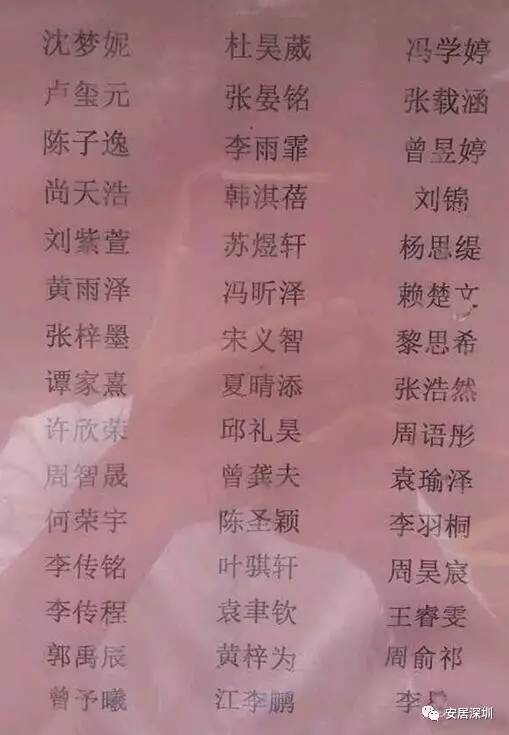 沈梦妮 杜昊葳 冯学婷
卢玺元 张晏铭 张载涵
陈子逸 李雨霏 曾昱婷
尚天浩 韩淇蓓 刘锦
刘紫萱 苏煜轩 杨思缇
黄雨泽 冯昕泽 赖楚文
张梓墨 宋义智 黎思希
谭家熹 夏晴添 张浩然
许欣荣 邱礼昊 周语彤
周智晟 曾龚夫 袁瑜泽
何荣宇 陈圣颖 李羽桐
李传铭 叶骐轩 周昊宸
李传程 袁聿钦 王睿雯
郭禹辰 黄梓为 周俞祁
曾予曦 江李鹏 李
安居深圳